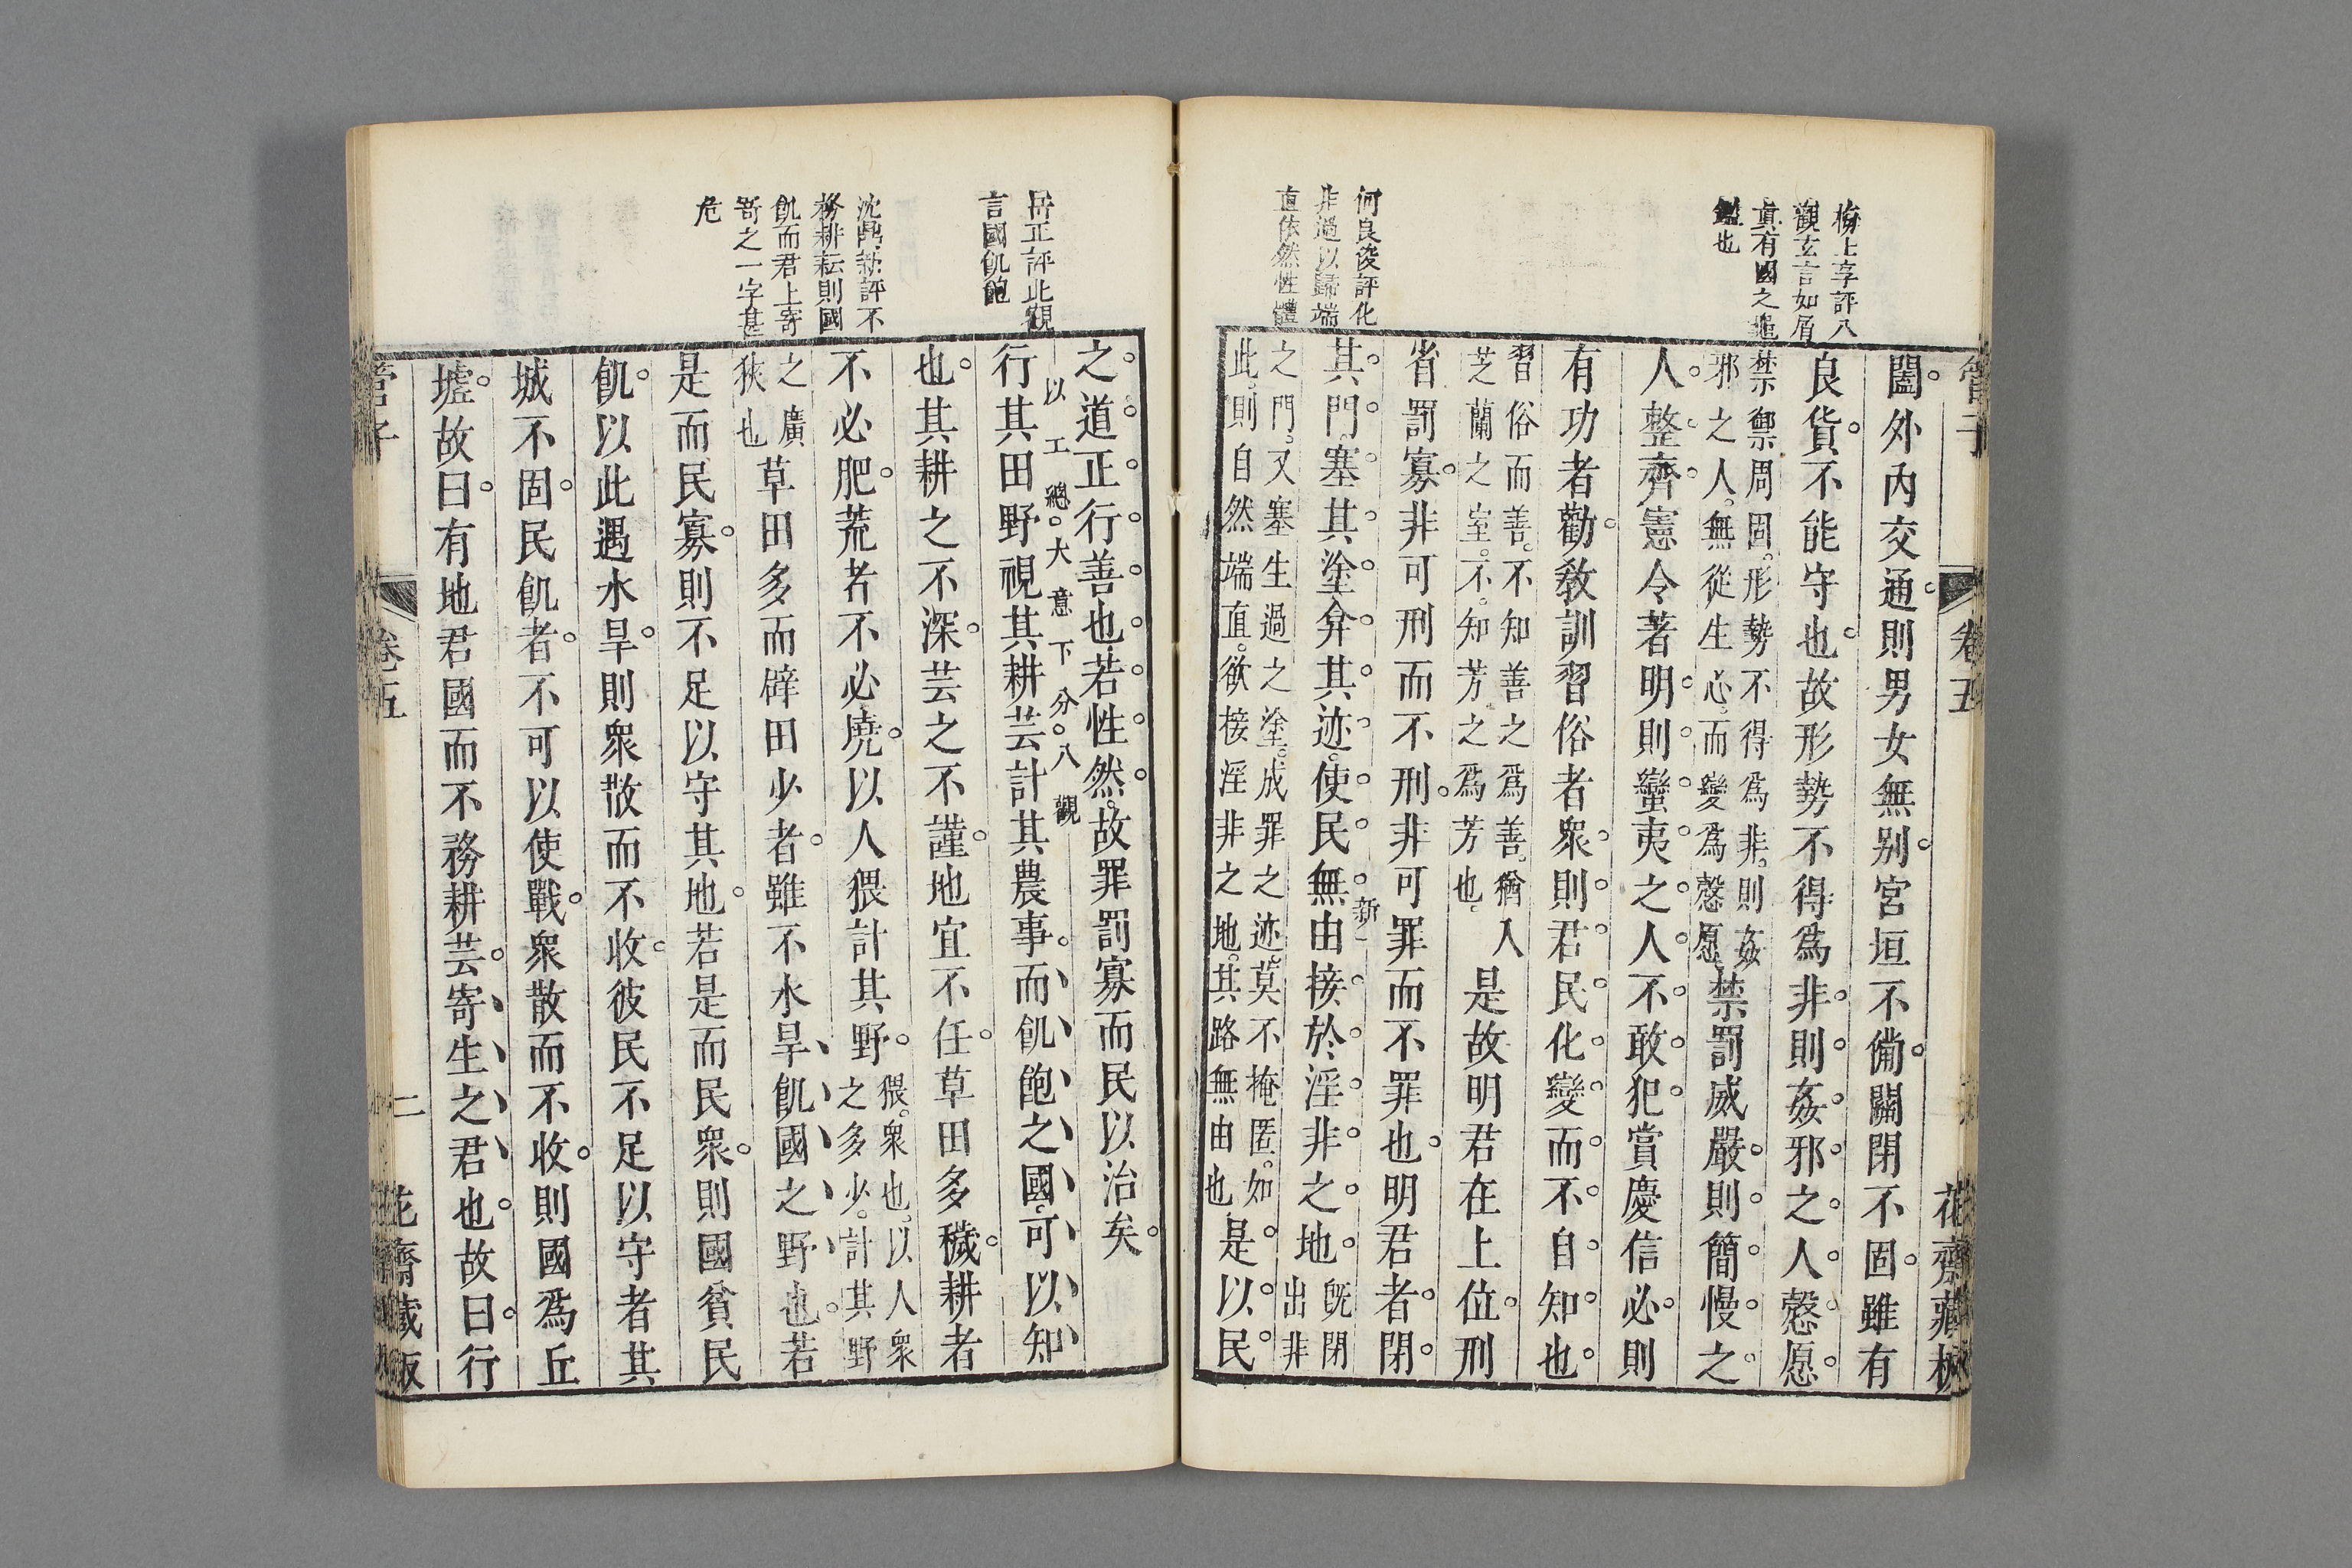 梅士享評八
觀玄言如屑
真有國之龜
鑑也
何良俊評化
非過以歸端
直依然性體
管子
卷五
花齋藏板
闔外內交通則男女無別宮垣不備關閉不固雖有
良貨不能守也故形勢不得爲非則姦邪之人慤愿
禁禦周固形勢不得爲非則姦
邪之人無從生心而變爲慤愿
禁罰威嚴則簡慢之
人整齊憲令著明則蠻夷之人不敢犯賞慶信必則
有功者勸教訓習俗者衆則君民化變而不自知也
習俗而善不知善之爲善猶入
芝蘭之室不知芳之爲芳也
是故明君在上位刑
省罰寡非可刑而不刑非可罪而不罪也明君者閉
新
其門塞其塗弇其迹使民無由接於淫非之地
既閉
出非
之門又塞生過之塗成罪之迹莫不掩匿如
此則自然端直欲接淫非之地其路無由也
是以民
岳正評此觀
言國飢飽
沈鼎新評不
務耕耘則國
飢而君上寄
寄之一字甚
危
之道正行善也若性然故罪罰寡而民以治矣
以工總大意下分八觀
行其田野視其耕芸計其農事而飢飽之國可以知
也其耕之不深芸之不謹地宜不任草田多穢耕者
不必肥荒者不必墝以人猥計其野
猥衆也以人衆
之多少計其野
之廣
狹也
草田多而辟田少者雖不水旱飢國之野也若
是而民寡則不足以守其地若是而民衆則國貧民
飢以此遇水旱則衆散而不收彼民不足以守者其
城不固民飢者不可以使戰衆散而不收則國爲丘
墟故曰有地君國而不務耕芸寄生之君也故曰行
管子
卷五
二
花齋藏板